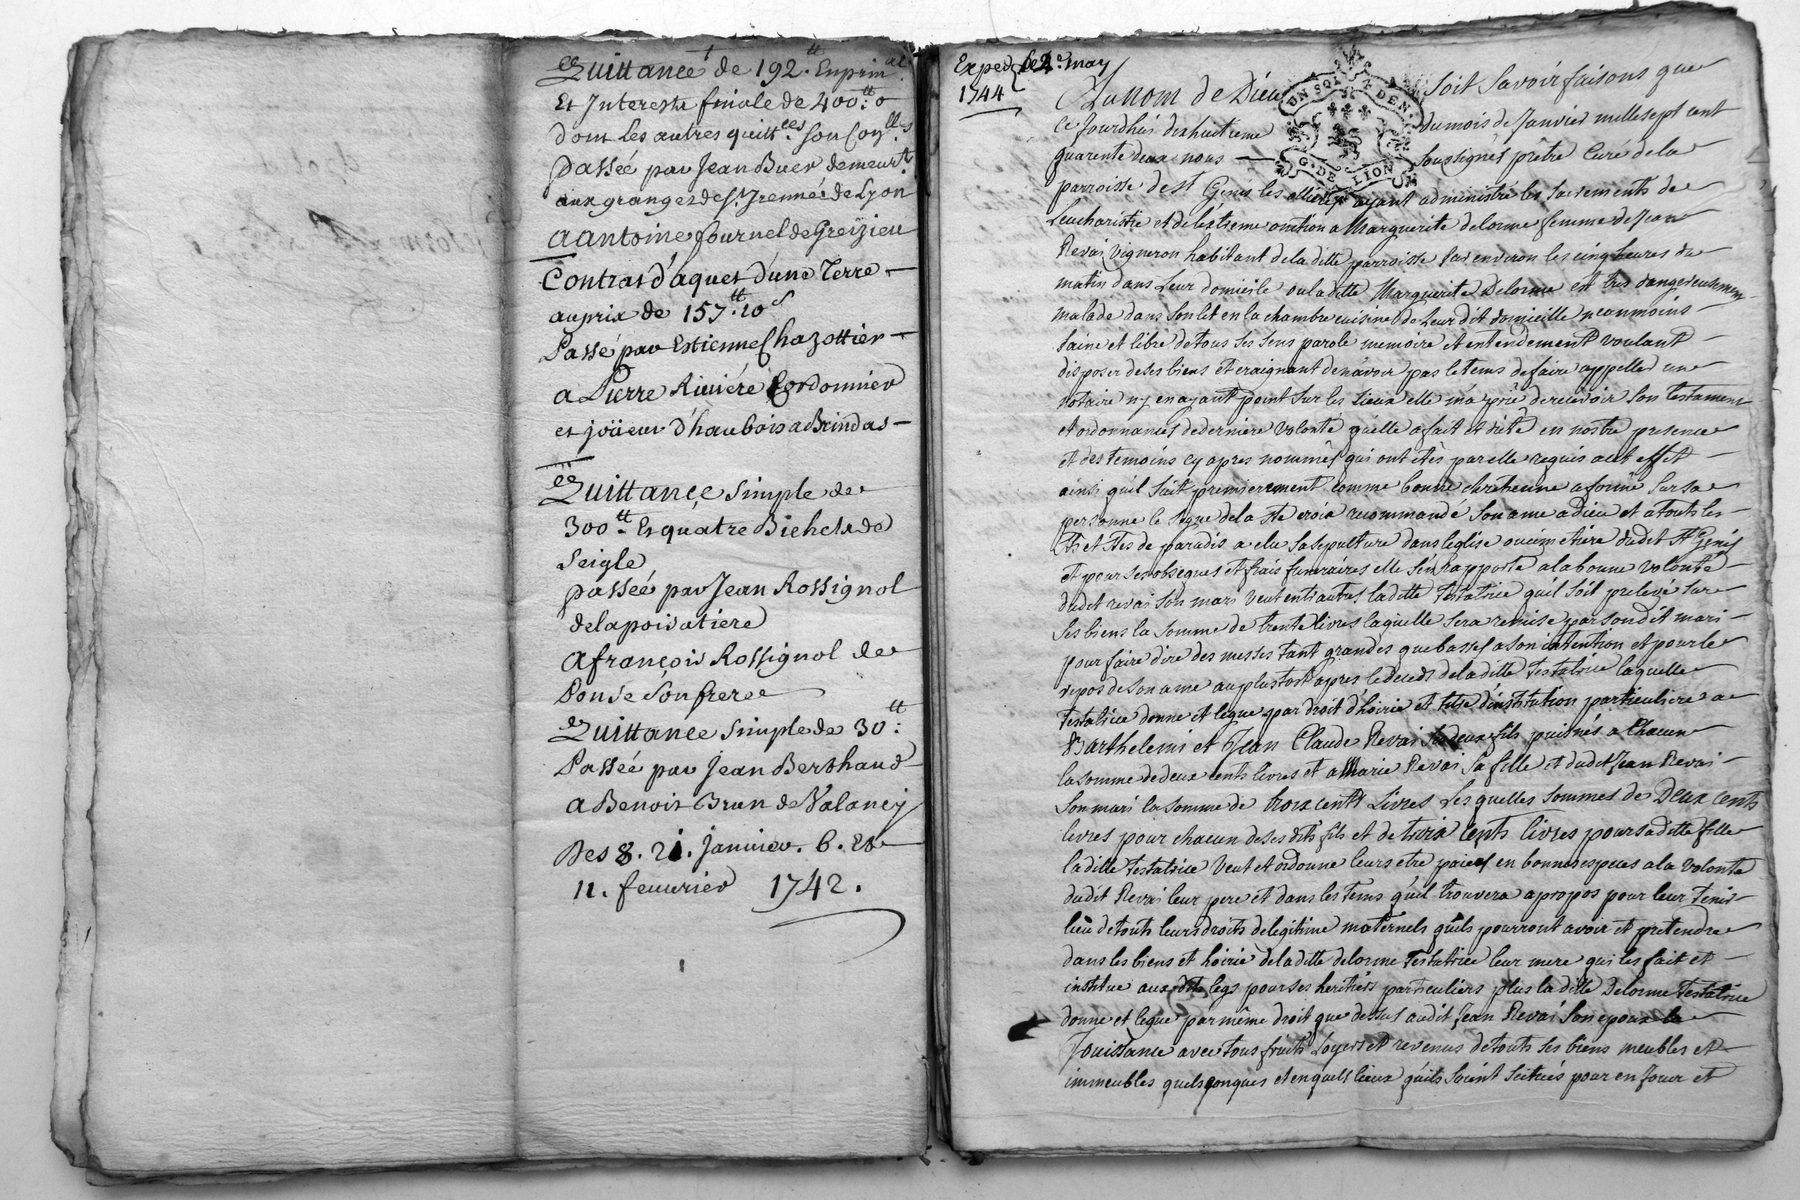 Quittance de 192.tt Enprin.al
Et Interests finale de 400.tt o
dont les autres quitt.ces son Con
Passée par Jean Buer demeur.t
aux granges de s.t Irennée de Lyon
A antoine fournel de Greizieu
Contrat d'aquet d'une Terre
au prix de 157.tt 10 s
Passé par Estienne Chazottier
a Pierre Riviére Cordonnier
et joüeur d'haubois a Brindas
Quittance simple de
300.tt Et quatre Bichets de
Seigle
passée par Jean Rossignol
de la poisatiere
A francois Rossignol de
Ponse son frere
Quittance simple de 30.tt
Passée par Jean Berthaud
a Benoit Brun de Valancy
Des 8. 21. Janvier. 6. Et
11. fevurier 1742.
Exped. le 2.e may
1744
Au nom de Dieu Soit Savoir faisons que
UN SOL 4 DEN. G. DE LION
ce Jourdhui dixhuitieme du mois de Janvier mille sept cent
quarente deux nous Soussignés prêtre Curé de la
parroisse de st Genis les ollieres ayant administré les sacrements de
Leucharistie et de lextreme onction a Marguerite delorme femme de Jean
Revai Vigneron habitant de la ditte parroisse Sur environ les cinq heures du
matin dans Leur domicile ou la ditte Marguerite Delorme est tres dangereusement
malade dans Son lit en la chambre cuisine de Leur dit domicille neanmoins
saine et libre de tous ses sens parole memoire et entendement voulant
disposer de ses biens et craignant de navoir pas le tems de faire appeller un
notaire ny en ayant point Sur les Lieux elle ma prié de recevoir Son testament
et ordonnances de derniere volonté quelle a fait et dicté en nostre presence
et des temoins cy apres nommés qui ont etés par elle requis a cet effet
ainsi quil Suit premierement comme bonne chretienne a formé Sur sa
personne le Signe de la ste croix recommandé Son ame a dieu et a touts les
Sts et Stes de paradis a elu sa sepulture dans leglise ou cimetiere dudit st Genis
et pour ses obseques et frais funeraires elle sen rapporte a la bonne volonté
dudit revai son mari veut entr autres la ditte testatrice quil soit prelevé sur
Ses biens la somme de trente livres laquelle sera remise par son dit mari
pour faire dire des messes tant grandes que basses a son intention et pour le
repos de son ame au plustost apres le deceds de la ditte testatrice laquelle
testatrice donne et legue par droit d'hoirie et titre d'institution particuliere a
Barthelemi et Jean Claude Revai Ses deux fils puinés a Chacun
la somme de deux cents livres et a Marie Revai Sa fille et dudit Jean Revai
Son mari la somme de trois cents Livres Lesquelles sommes de Deux cents
livres pour chacun de ses dits fils et de trois cents livres pour sa ditte fille
la ditte testatrice veut et ordonne leurs etre paiees en bonnes especes a la volonté
dudit Revai leur pere et dans les tems quil trouvera apropos pour leur tenir
lieu de touts leurs droits de legitime maternels quils pourront avoir et pretendre
dans les biens et hoirie de la ditte delorme testatrice leur mere qui les fait et
institue aux dits legs pour ses heritiers particuliers plus la ditte Delorme testatrice
donne et legue par même droit que dessus audit Jean Revai Son epoux la
Jouissance avec tous fruits Loyers et revenus de touts ses biens meubles et
immeubles quelsconques et en quels lieux quils soient scitués pour en Jouir et